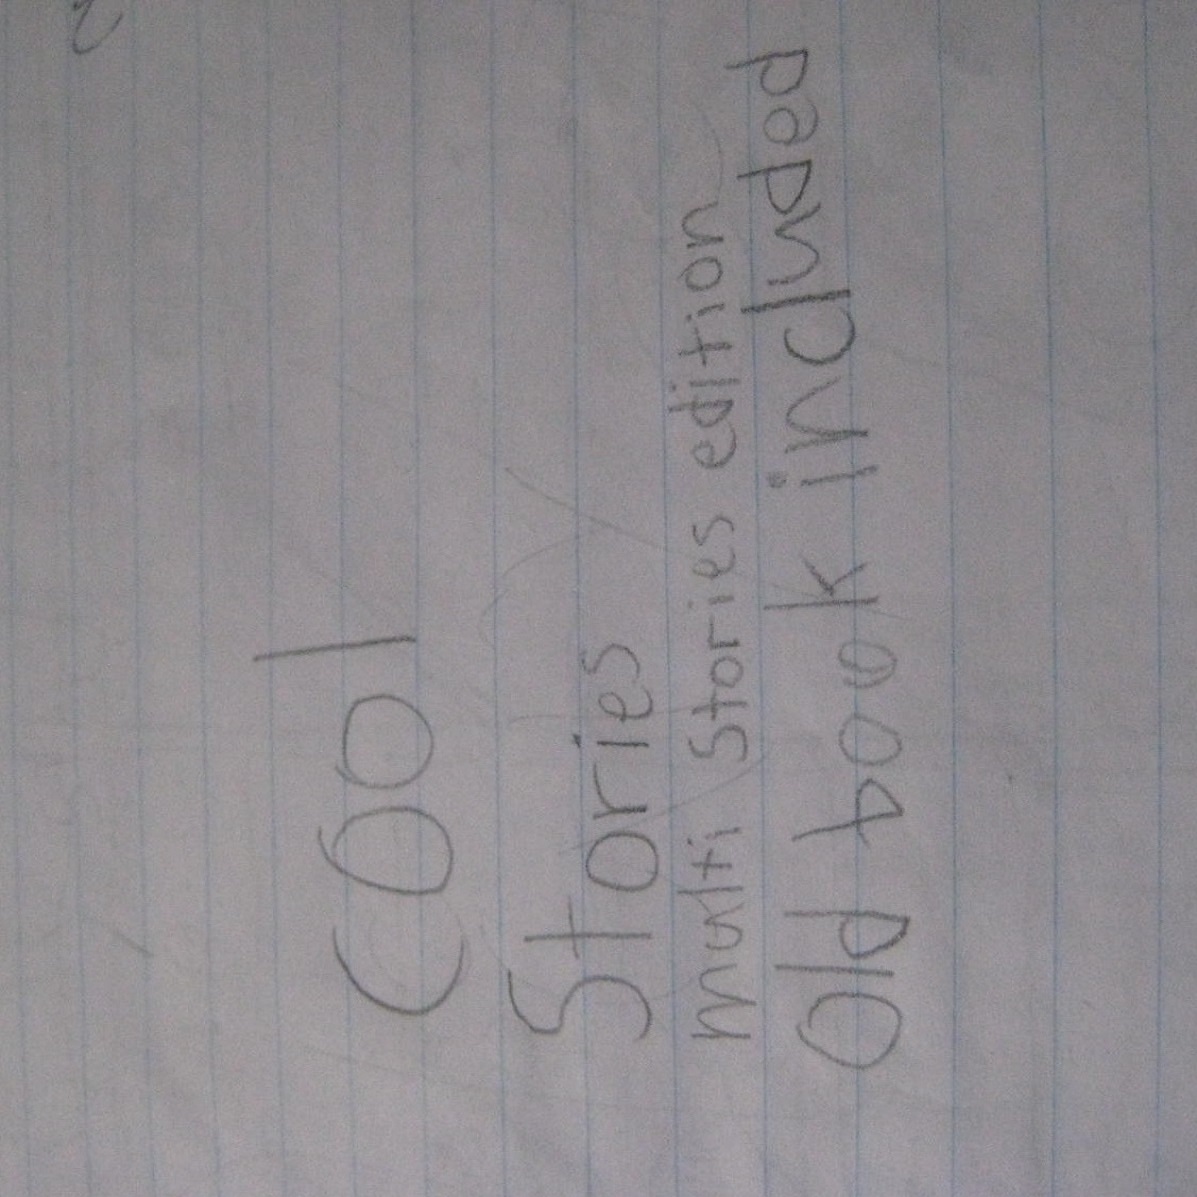 Cool
Stories
multi Stories edition
Old book inclуded